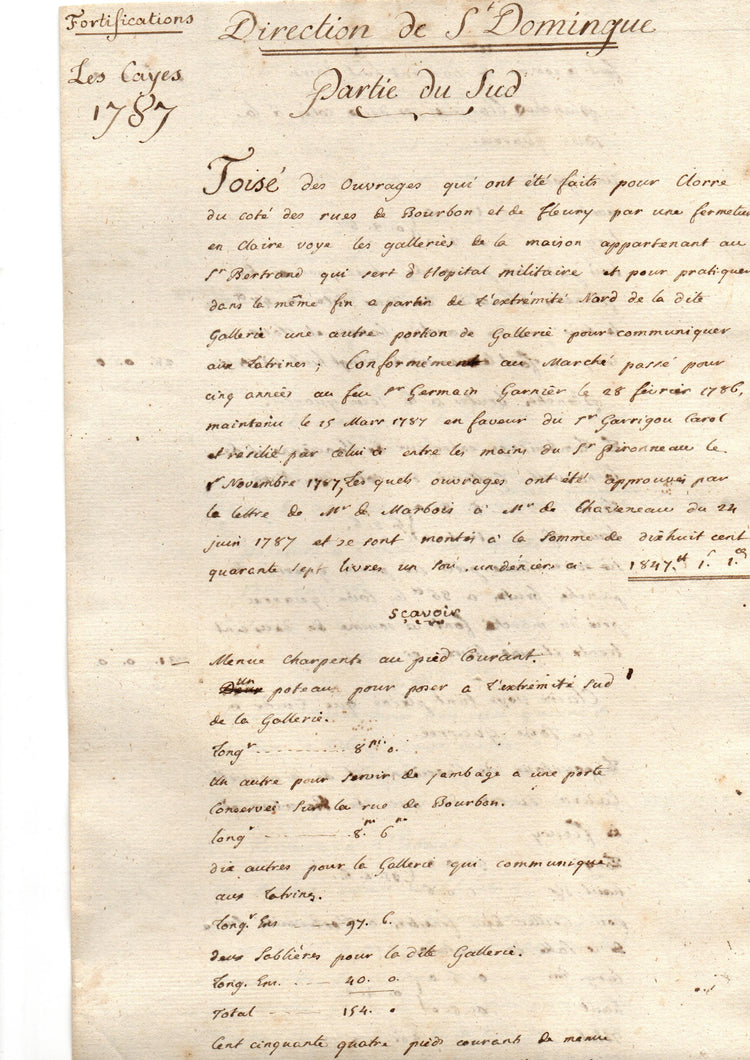 Fortifications
Les Cayes
1787
Direction de St Domingue
Partie du Sud
Toisé des ouvrages qui ont été faits pour Clorre
du coté des rues de Bourbon et de Fleury par une fermetur
en Claire voye les galleries de la maison appartenant au
Sr Bertrand qui sert d'Hopital militaire et pour pratiquer
dans la même fin a partir de L'extrémité Nord de la dite
Gallerie une autre portion de Gallerie pour communiquer
aux Latrines; Conformément au Marché passé pour
cinq années au feu Sr Germain Garnier le 28 février 1786,
maintenu le 15 Mars 1787 en faveur du Sr Garrigou Carol
et résilié par celui ci entre les mains du Sr Pironneau le
Novembre 1787, Les quels ouvrages ont été approuvés par
la lettre de Mr de Marbois à Mr de du 24
juin 1787 et se sont montés à la Somme de dixhuit cent
quarante sept livres un sou un dénier ci 1847.tt 1.s 1.d
Sçavoir
Menue Charpente au pied Courant.
Un poteau pour poser a L'extrémité Sud
de la Gallerie.
Longr 8 0.
Un autre pour servir de jambage a une porte
Conservée Sur la rue de Bourbon.
longr 8. 6
dix autres pour la Gallerie qui communique
aux Latrines.
Longr Ens 97. 6.
deux Sablières pour la dite Gallerie.
Long. Ens. 40. 0.
Total 154. 0
Cent cinquante quatre pieds courants de menue